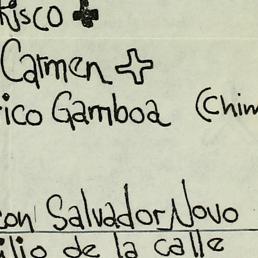 Kisco ✚
Carmen ✚
rico Gamboa (Chim
con Salvador Novo
ilio de la calle